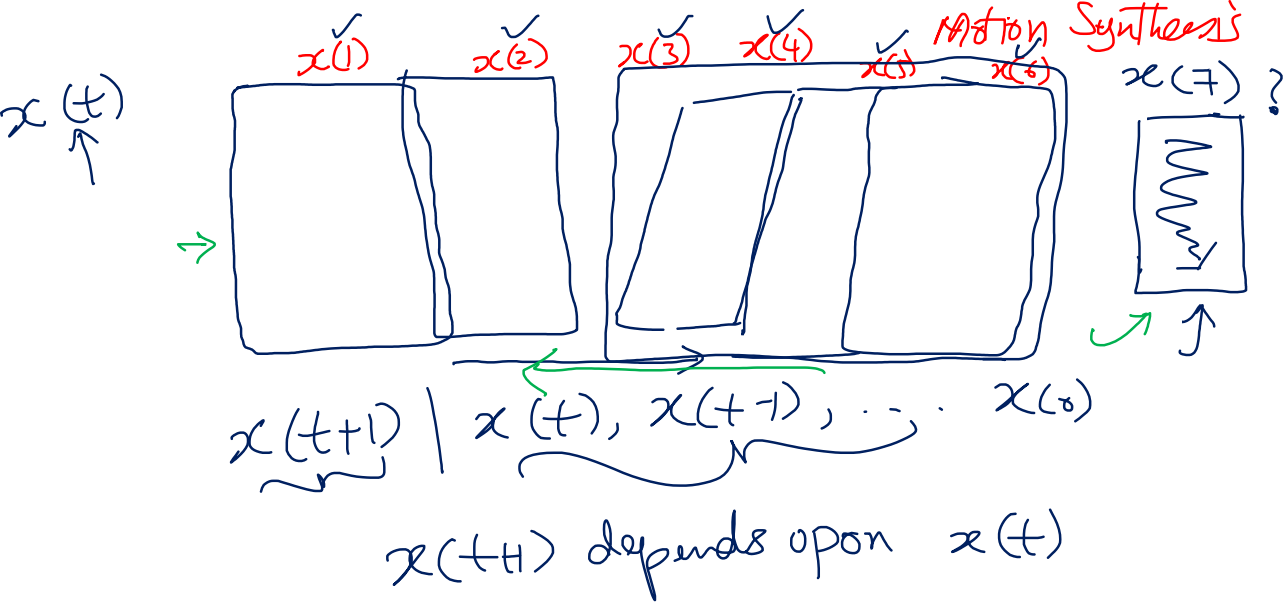 Motion Synthesis
x(1) x(2) x(3) x(4) x(5) x(6) x(7) ?
x(t)
x(t+1) | x(t), x(t-1), .... x(0)
x(t+1) depends upon x(t)